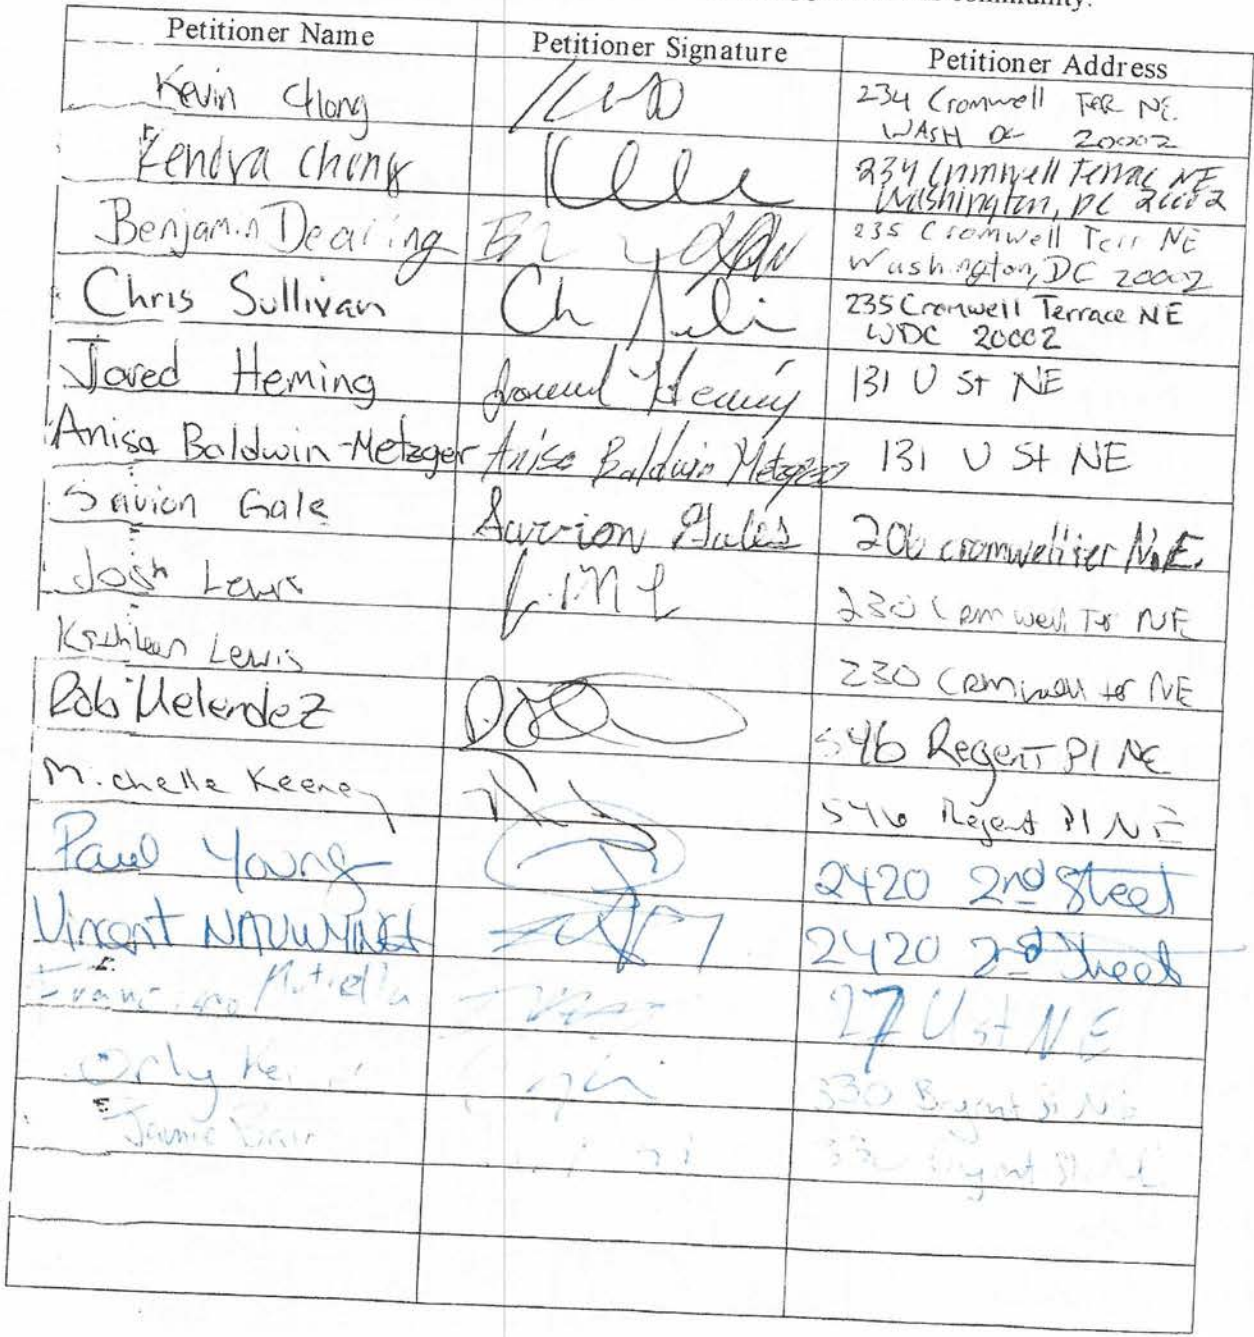 community.
Petitioner Name Petitioner Signature Petitioner Address
Kevin Chong 234 Cromwell Ter NE.
WASH DC 20002
Kendra Chong 234 Cromwell Terrac NE
Washington, DC 20002
Benjamin Dearing 235 Cromwell Terr NE
Washington, DC 20002
Chris Sullivan 235 Cromwell Terrace NE
WDC 20002
Jared Heming 131 U St NE
Anisa Baldwin-Metzger Anisa Baldwin Metzger 131 U St NE
Savion Gale Savion Gales 206 cromwell ter N.E.
Josh Lewis 230 Cromwell Ter NE
Kathleen Lewis 230 Cromwell ter NE
Rob Melendez 546 Regent Pl NE
Michelle Keeney 546 Regent Pl NE
Paul Young 2420 2nd Street
Vincent 2420 2nd Street
27 U St NE
Orly 330 Bryant St NE
Jamie Bryant St NE